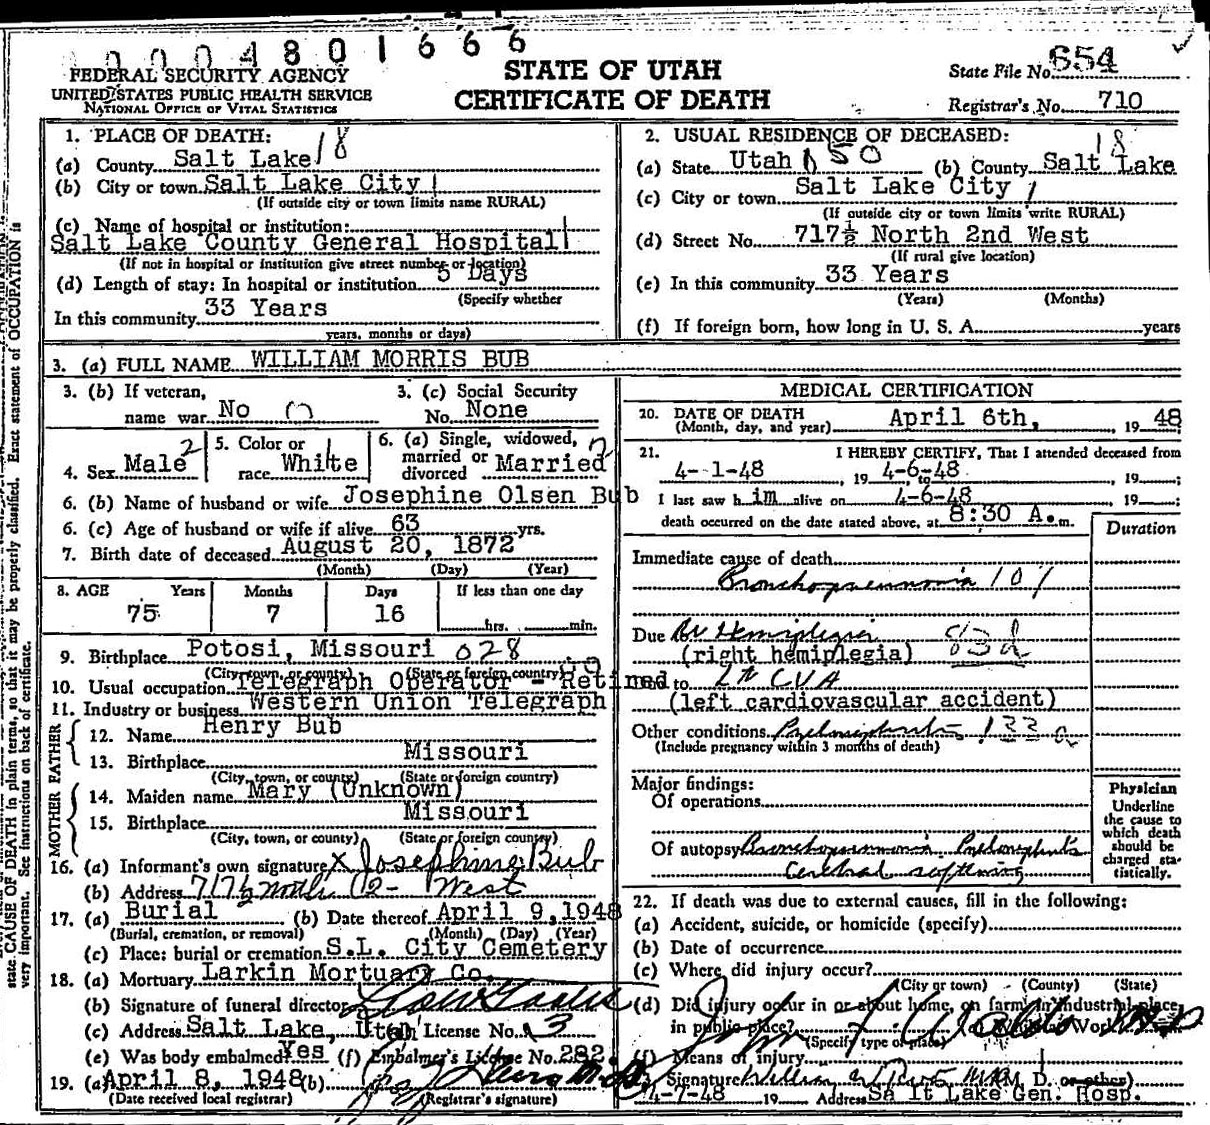 0004801666
FEDERAL SECURITY AGENCY
UNITED STATES PUBLIC HEALTH SERVICE
NATIONAL OFFICE OF VITAL STATISTICS
STATE OF UTAH
CERTIFICATE OF DEATH
State File No. 654
Registrar's No. 710
1. PLACE OF DEATH: 18
(a) County Salt Lake
(b) City or town Salt Lake City
(If outside city or town limits name RURAL)
(c) Name of hospital or institution:
Salt Lake County General Hospital
(If not in hospital or institution give street number or location)
(d) Length of stay: In hospital or institution 5 Days
(Specify whether
In this community 33 Years
years, months or days)
2. USUAL RESIDENCE OF DECEASED: 18
(a) State Utah 50 (b) County Salt Lake
(c) City or town Salt Lake City
(If outside city or town limits write RURAL)
(d) Street No. 717½ North 2nd West
(If rural give location)
(e) In this community 33 Years
(Years) (Months)
(f) If foreign born, how long in U. S. A. years
3. (a) FULL NAME WILLIAM MORRIS BUB
3. (b) If veteran,
name war No
3. (c) Social Security
No. None
4. Sex Male 2
5. Color or
race White
6. (a) Single, widowed,
married or
divorced Married
6. (b) Name of husband or wife Josephine Olsen Bub
6. (c) Age of husband or wife if alive 63 yrs.
7. Birth date of deceased August 20, 1872
(Month) (Day) (Year)
8. AGE Years Months Days If less than one day
75 7 16 hrs. min.
9. Birthplace Potosi, Missouri 028
(City, town, or county) (State or foreign country)
10. Usual occupation Telegraph Operator - Retired
11. Industry or business Western Union Telegraph
FATHER
12. Name Henry Bub
13. Birthplace Missouri
(City, town, or county) (State or foreign country)
MOTHER
14. Maiden name Mary (Unknown)
15. Birthplace Missouri
(City, town, or county) (State or foreign country)
16. (a) Informant's own signature x Josephine Bub
(b) Address 717½ North 2- West
17. (a) Burial (b) Date thereof April 9, 1948
(Burial, cremation, or removal) (Month) (Day) (Year)
(c) Place: burial or cremation S.L. City Cemetery
18. (a) Mortuary Larkin Mortuary Co.
(b) Signature of funeral director
(c) Address Salt Lake, Utah License No. 13
(e) Was body embalmed Yes (f) Embalmer's License No. 282
19. (a) April 8, 1948 (b)
(Date received local registrar) (Registrar's signature)
MEDICAL CERTIFICATION
20. DATE OF DEATH
(Month, day, and year) April 6th, 19 48
21. I HEREBY CERTIFY, That I attended deceased from
4-1-48, 19 to 4-6-48, 19
I last saw h im alive on 4-6-48 19
death occurred on the date stated above, at 8:30 A. m.
Duration
Immediate cause of death
Bronchopneumonia 107
Due Rt Hemiplegia 83d
(right hemiplegia)
Due to Lt CVA
(left cardiovascular accident)
Other conditions Pyelonephritis 133a
(Include pregnancy within 3 months of death)
Major findings:
Of operations
Of autopsy Bronchopneumonia Pyelonephritis
Cerebral softening
Physician
Underline
the cause to
which death
should be
charged sta-
tistically.
22. If death was due to external causes, fill in the following:
(a) Accident, suicide, or homicide (specify)
(b) Date of occurrence
(c) Where did injury occur?
(City or town) (County) (State)
(d) Did injury occur in or about home, on farm, in industrial place,
in public place? While at Work?
(Specify type of place)
(f) Means of injury
Signature William M. D. or other)
4-7-48 19 Address Salt Lake Gen. Hosp.
state CAUSE OF DEATH in plain terms, so that it may be properly classified. Exact statement of OCCUPATION is
very important. See instructions on back of certificate.